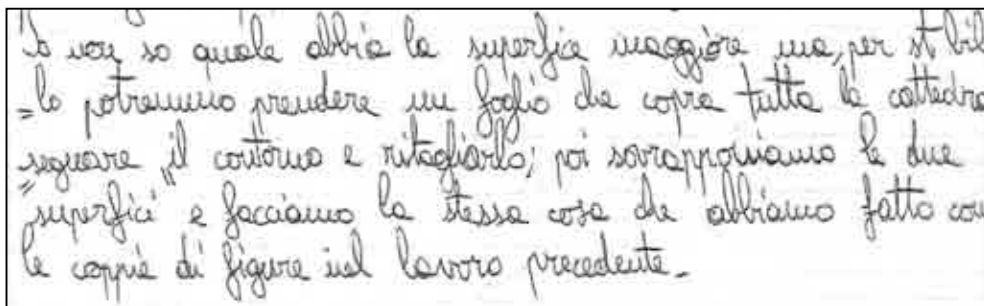 Io non so quale abbia la superfice maggiore ma, per st bil
=lo potremmo prendere un foglio che copra tutta la cattedra
segnare il contorno e ritagliarlo; poi sovrapponiamo le due
"superfici" e facciamo la stessa cosa che abbiamo fatto con
le coppie di figure nel lavoro precedente.